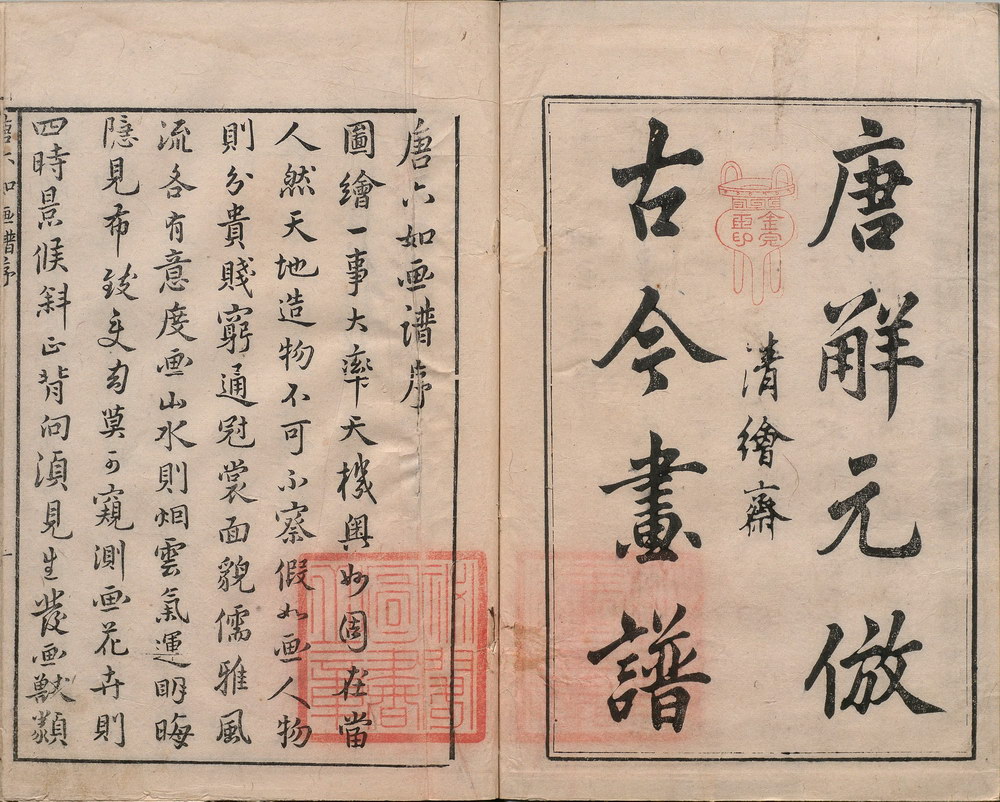 唐解元倣
清繪齋
古今畫譜
唐六如画譜序
圖繪一事大率天機與妙固在當
人然天地造物不可不察假如画人物
則分貴賤窮通冠裳面貌儒雅風
流各有意度画山水則烟雲氣運明晦
隱見布致支勾莫可窺測画花卉則
四時景候斜正背向須見生發画獸類
唐六如画譜序
一